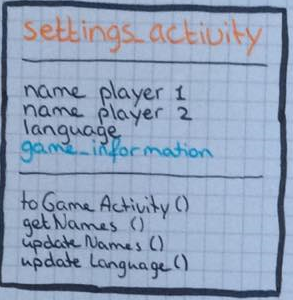 settings_activity
name player 1
name player 2
language
game_information
toGameActivity()
getNames ()
updateNames ()
updateLanguage()